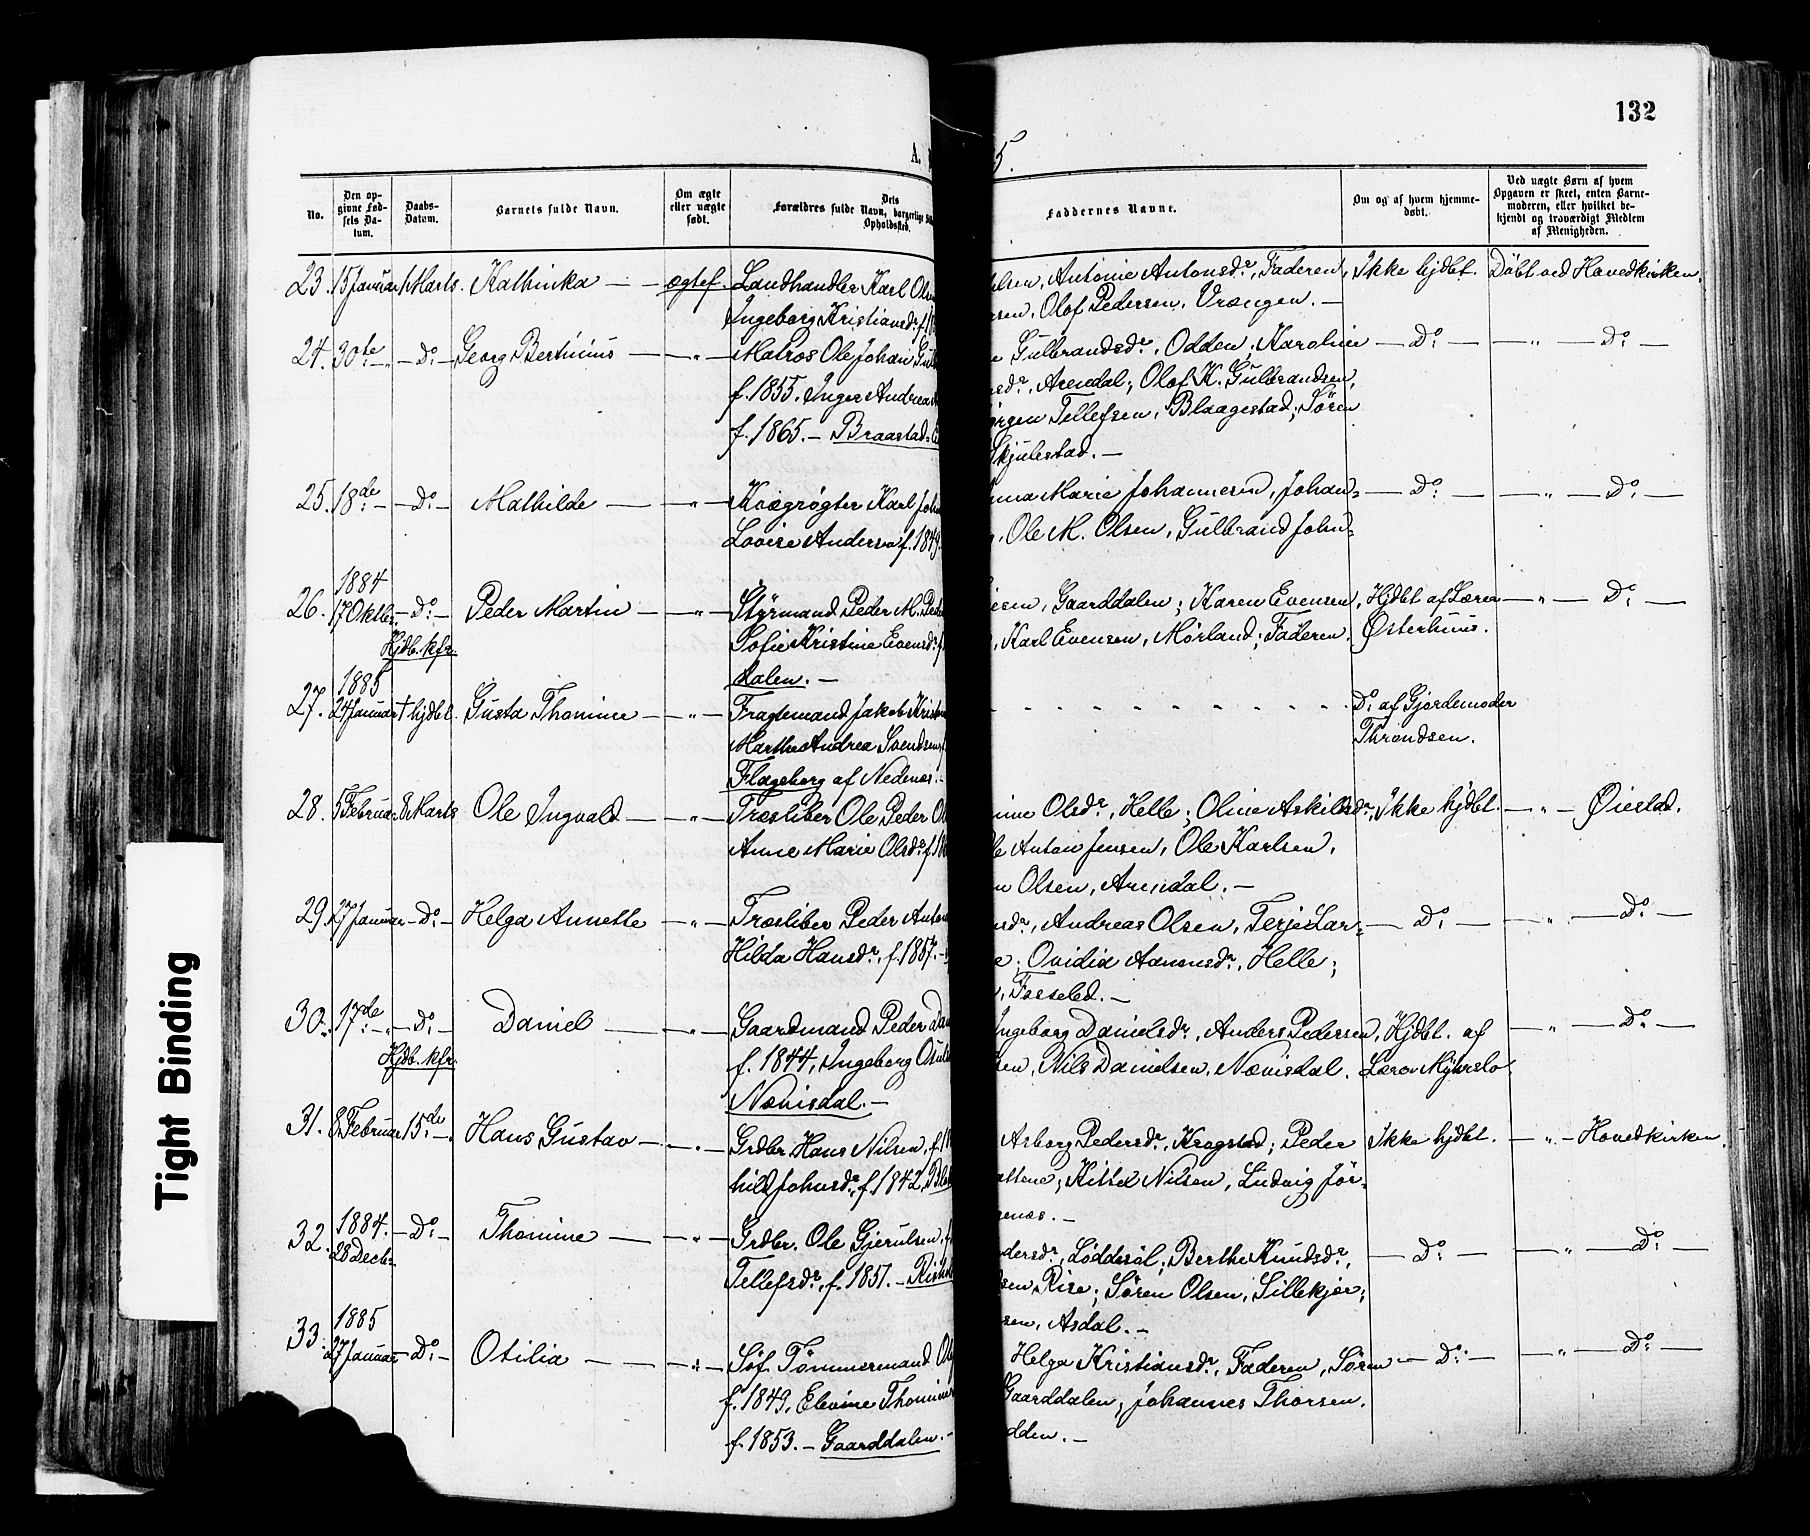 132
A.
5.
No.
Den op-
givne Fød-
sels Da-
tum.
Daabs-
Datum.
Barnets fulde Navn.
Om ægte
eller uægte
født.
Dets
Forældres fulde Navn, borgerlige
Opholdssted.
Faddernes Navne.
Om og af hvem hjemme-
døbt.
Ved uægte Børn af hvem
Opgaven er skeet, enten Barne-
moderen, eller hvilket be-
kjendt og troværdigt Medlem
af Menigheden.
23. 15 Januar 1 Marts. Kathinka — ægtef. Landhandler Karl Ols
Ingeborg Kristiansdr. f. 1
lsen, Antonie Antonsdr., Faderen,
sen, Olof Pedersen, Vrængen. —
Ikke hjdbt. Döbt ved Hovedkirken.
24. 30te — Do. — Georg Bertinius — „ — Matros Ole Johan Gul
f. 1855. Inger Andrea
f. 1865. — Braastad
e Gulbrandsdr., Odden; Karoline
sdr., Arendal; Olof K. Gulbrandsen,
örgen Tellefsen, Blaagestad; Sören
Skjulestad. —
— Do. — — „ — Do. —
25. 18de — Do. — Mathilde — „ — Kvægrøgter Karl Joh
Lovise Anderso f. 1849.
nna Marie Johannesen, Johan=
, Ole M. Olsen, Gulbrand John=
— Do. — — „ — Do. —
26. 1884
17 Oktbr. — Do. — Peder Martin — „ — Styrmand Peder M. Ped
Hjdb. kfr.
Sofie Kristine Evensdr. f.
dalen. —
esen, Gaarddalen; Karen Evensen,
, Karl Evensen, Mörland; Faderen.
Hjdbt af Lærer
Østerhuus.
— „ — Do. —
27. 1885
24 Januar † hjdbt. Gusta Thomine — „ — Fragtemand Jakob Kristen
Marthe Andrea Svendsen f.
Flageborg af Nedenes. —
Do. af Gjordemoder
Throndsen.
28. 5 Februar 8 Marts Ole Ingvald — „ — Træsliber Ole Peder Ol
Anne Marie Olsdr. f. 18
ine Olsdr., Helle; Oline Askildsdr.,
le Anton Jensen, Ole Karlsen,
n Olsen, Arendal. —
Ikke hjdbt. — „ — Øiestad.
29. 27 Januar — Do. — Helga Annette — „ — Træsliber Peder Anton
Hilda Hansdr., f. 1857. —
sdr., Andreas Olsen, Terje Lar=
e; Ovidia Aanonsdr., Helle;
, Fosseled. —
— Do. — — „ — Do. —
30. 17de — „ — Do. — Daniel — „ — Gaardmand Peder Dan
Hjdb. kfr.
f. 1844, Ingeborg Osul
Nævisdal. —
Ingeborg Danielsdr., Anders Pedersen,
sen, Nils Danielsen, Nævisdal.
Hjdbt. af
Lærer Myhrslo
— „ — Do. —
31. 8 Februar 15de — Hans Gustav — „ — Grdbr. Hans Nilsen, f. 18
hild Johnsdr., f. 1842,
Asborg Pedersdr., Kragstad; Peder
attene; Kittel Nilsen, Ludvig Jör=
enæs. —
Ikke hjdbt. — „ — Hovedkirken.
32. 1884.
28 Decbr — Do. — Thomine — „ — Grdbr. Ole Gjerulsen, f
Tellefsdr., f. 1857. — Rise
dersdr., Löddesöl; Berthe Knudsdr.,
sen, Rise; Sören Olsen, Sillekjær;
sen, Asdal. —
— Do. — — „ — Do. —
33. 1885
27 Januar — Do. — Otilia — „ — Söf. Tömmermand Ol
f. 1849, Elevine Thomine
f. 1853. — Gaarddalen. —
Helga Kristiansdr., Faderen, Sören
Gaarddalen; Johannes Thorsen,
dden. —
— Do. — — „ — Do. —
Tight Binding